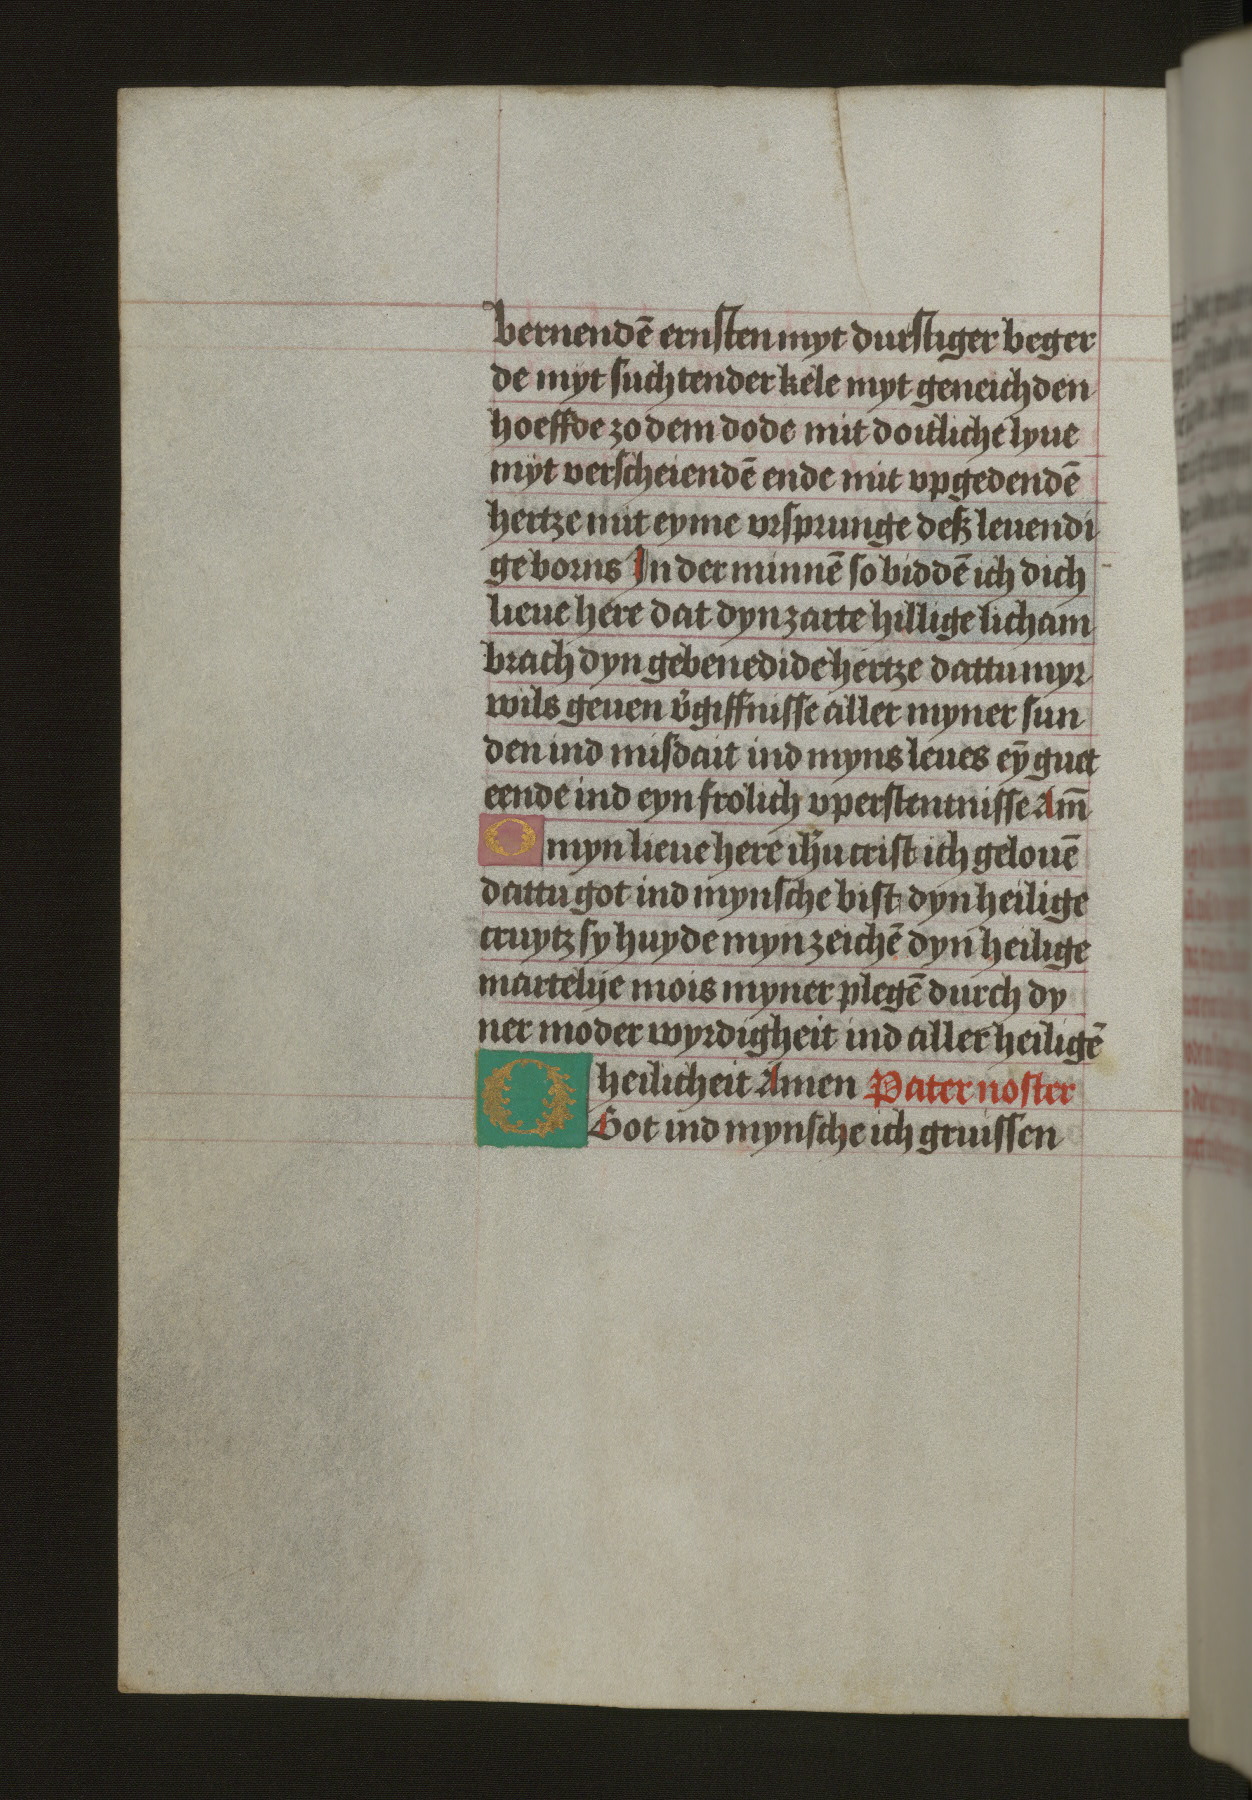 bernendē ernsten myt durstiger beger
de myt suchtender kele myt geneichden
hoeffde zo dem dode mit doitlichē lyue
myt verscheiendē ende mit vpgedendē
hertze mit eyme vrsprunge deß leuendi
ge borns In der minnē so biddē ich dich
lieue here dat dyn zarte hillige licham
brach dyn gebenedide hertze dattu myr
wils geuen v̄giffnisse aller myner sun
den ind misdait ind myns leues eȳ guet
eende ind eyn frolich vperstentnisse Am̄
O myn lieue here ih̄u crist ich gelouē
dattu got ind mynsche bist dyn heilige
cruytz sy huyde myn zeichē dyn heilige
martelije mois myner plegē durch dy
ner moder wyrdigheit ind aller heiligē
heilicheit Amen Pater noster
O Got ind mynsche ich gruissen